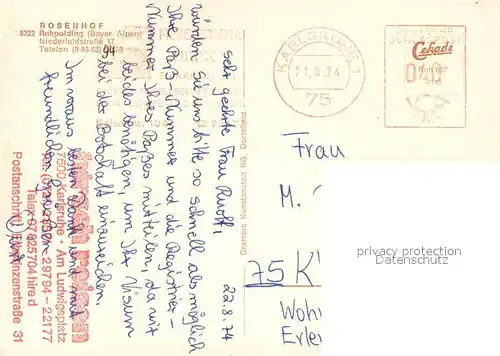 ROSENHOF
8222 Ruhpolding (Bayer. Alpen)
Niederfeldstraße 17
Telefon (0 86 63)
22.8.74
sehr geehrte Frau Ruoff,
würden Sie uns bitte so schnell als möglich
Ihre Paß Nummer und die Registrier-
Nummer Ihres Paßes mitteilen, da wir
beides benötigen, um Ihr Visum
bei der Botschaft einzureichen.
Im voraus besten Dank und mit
freundlichen Grüssen
7500 Karlsruhe · Am Ludwigsplatz
29794 - 22177
Telex 07 825704 hire d
Postanschrift: Prinzenstraße 31
Cramers Kunstanstalt KG, Dortmund
KARLSRUHE 1
21.8.74
75
DEUTSCHE
BUNDESPOST
Cekade
Frau
M.
75 K
Woh
Erle
privacy protection
watermarks